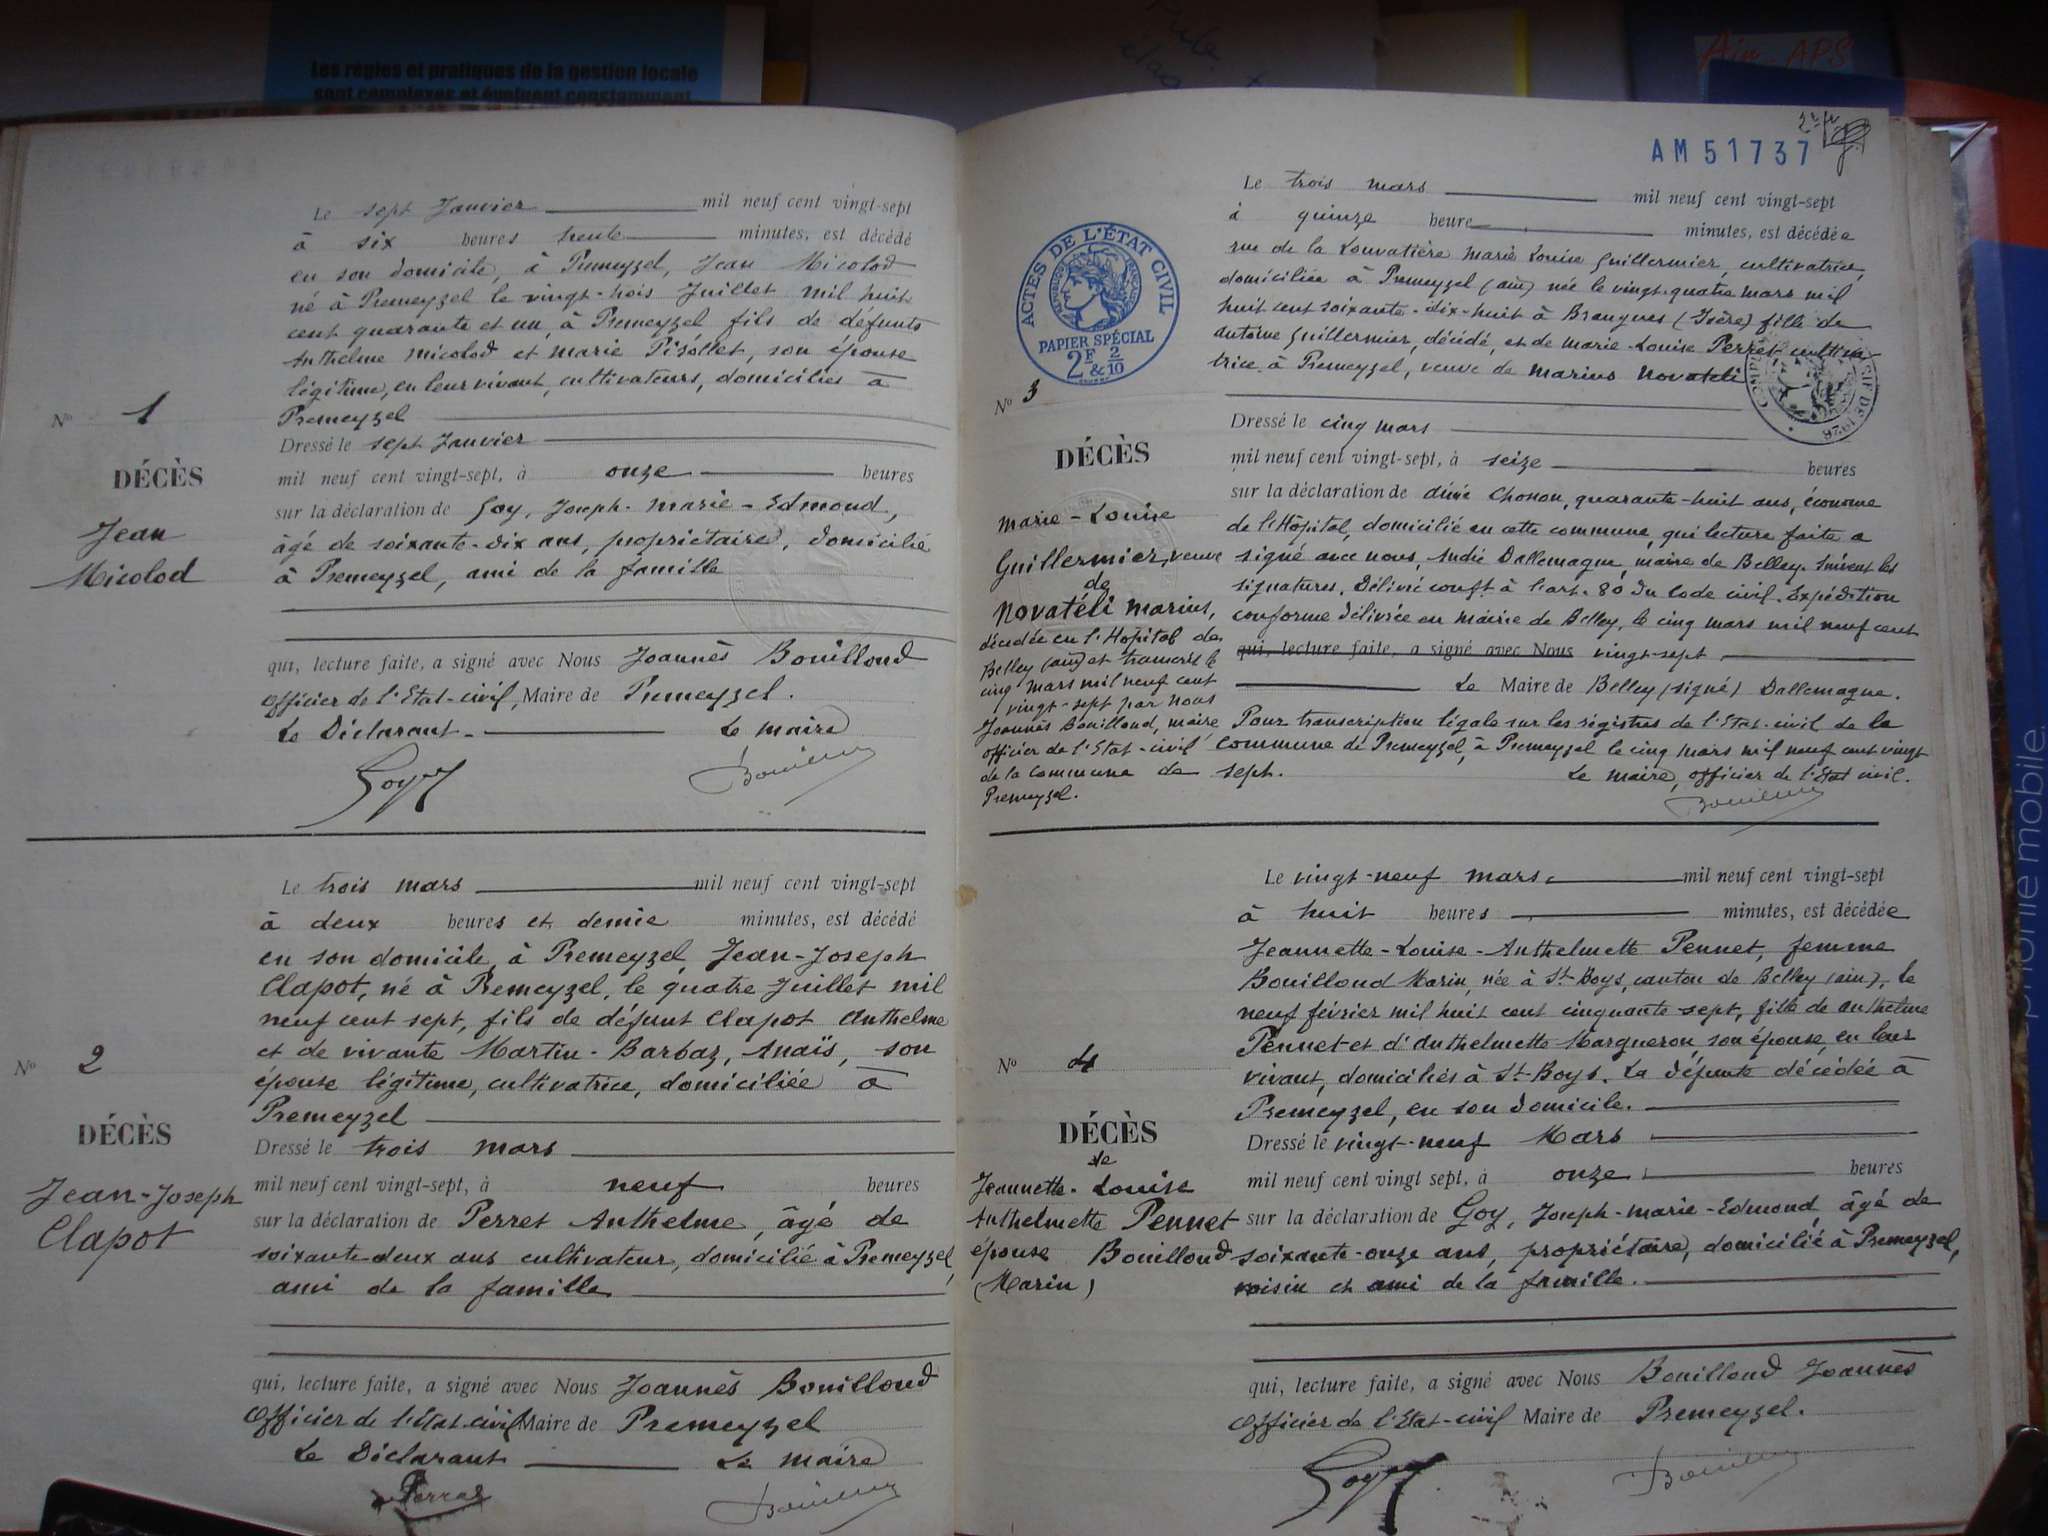 Les règles et pratiques de la gestion locale
sont complexes et évoluent constamment
Ain-APS
phonie mobile.
Le sept Janvier mil neuf cent vingt-sept
à six heures trente minutes, est décédé
en son domicile, à Premeyzel, Jean Micolod
né à Premeyzel le vingt-trois Juillet mil huit
cent quarante et un, à Premeyzel fils de défunts
Anthelme Micolod et Marie Pisollet, son épouse
légitime, en leur vivant, cultivateurs, domiciliés à
Premeyzel
No 1
DÉCÈS
Jean
Micolod
Dressé le sept Janvier
mil neuf cent vingt-sept, à onze heures
sur la déclaration de Goy, Joseph-Marie-Edmond,
âgé de soixante-dix ans, propriétaire, domicilié
à Premeyzel, ami de la famille
qui, lecture faite, a signé avec Nous Joannès Bouilloud
Officier de l'Etat-civil, Maire de Premeyzel.
Le Déclarant - Le maire
Goy
Bouilloud
Le trois mars mil neuf cent vingt-sept
à deux heures et demie minutes, est décédé
en son domicile à Premeyzel Jean-Joseph
Clapot, né à Premeyzel, le quatre Juillet mil
neuf cent sept, fils de défunt Clapot Anthelme
et de vivante Martin-Barbaz, Anaïs, son
épouse légitime, cultivatrice, domiciliée à
Premeyzel
No 2
DÉCÈS
Jean-Joseph
Clapot
Dressé le trois mars
mil neuf cent vingt-sept, à neuf heures
sur la déclaration de Perret Anthelme, âgé de
soixante-deux ans cultivateur, domicilié à Premeyzel,
ami de la famille
qui, lecture faite, a signé avec Nous Joannès Bouilloud
Officier de l'état-civil Maire de Premeyzel
Le Déclarant Le maire
Bouilloud
AM 51737
Le trois mars mil neuf cent vingt-sept
à quinze heure minutes, est décédée
rue de la Louvatière Marie Louise Guillermier, cultivatrice,
domiciliée à Premeyzel (ain) née le vingt-quatre mars mil
huit cent soixante-dix-huit à Brangues (Isère) fille de
Antoine Guillermier, décédé, et de Marie-Louise Perret cultiva
trice, à Premeyzel, veuve de Marius Novatéli
ACTES DE L'ÉTAT CIVIL
PAPIER SPÉCIAL
2F & 2/10
No 3
DÉCÈS
Marie-Louise
Guillermier, veuve
de
Novatéli Marius,
décédée en l'Hôpital de
Belley (ain) et transcrit le
cinq mars mil neuf cent
vingt-sept par nous
Joannès Bouilloud, maire
officier de l'Etat-civil
de la commune de
Premeyzel.
Dressé le cinq mars
mil neuf cent vingt-sept, à seize heures
sur la déclaration de Aimé Chonon, quarante-huit ans, économe
de l'Hôpital, domicilié en cette commune, qui lecture faite a
signé avec nous, André Dallemagne, maire de Belley. Suivent les
signatures. Délivré conft à l'art. 80 du Code civil. Expédition
conforme délivrée en mairie de Belley, le cinq mars mil neuf cent
qui, lecture faite, a signé avec Nous vingt-sept
Le Maire de Belley (signé) Dallemagne.
Pour transcription légale sur les régistres de l'Etat-civil de la
Commune de Premeyzel, à Premeyzel le cinq mars mil neuf cent vingt
sept. Le maire, officier de l'Etat civil.
Bouilloud
Le vingt-neuf mars mil neuf cent vingt-sept
à huit heures minutes, est décédée
Jeannette-Louise-Anthelmette Pennet, femme
Bouilloud Marin, née à St-Boys, canton de Belley (ain), le
neuf février mil huit cent cinquante-sept, fille de Anthelme
Pennet et d'Anthelmette Margueron, son épouse, en leur
vivant, domiciliés à St-Boys. La défunte décédée à
Premeyzel, en son domicile.
No 4
DÉCÈS
de
Jeannette-Louise
Anthelmette Pennet
épouse Bouilloud
(Marin)
Dressé le vingt-neuf Mars
mil neuf cent vingt sept, à onze heures
sur la déclaration de Goy, Joseph-Marie-Edmond, âgé de
soixante-onze ans, propriétaire, domicilié à Premeyzel,
voisin et ami de la famille.
qui, lecture faite, a signé avec Nous Bouilloud Joannès
Officier de l'Etat-civil Maire de Premeyzel.
Goy
Bouilloud